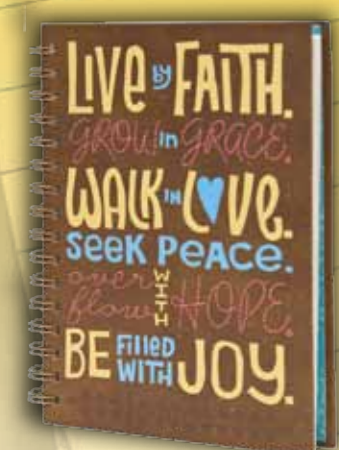 LIVE by FAITH.
GROW in GRACE.
WALK IN LOVE.
SEEK PEACE.
overflow WITH HOPE.
BE FILLED WITH JOY.